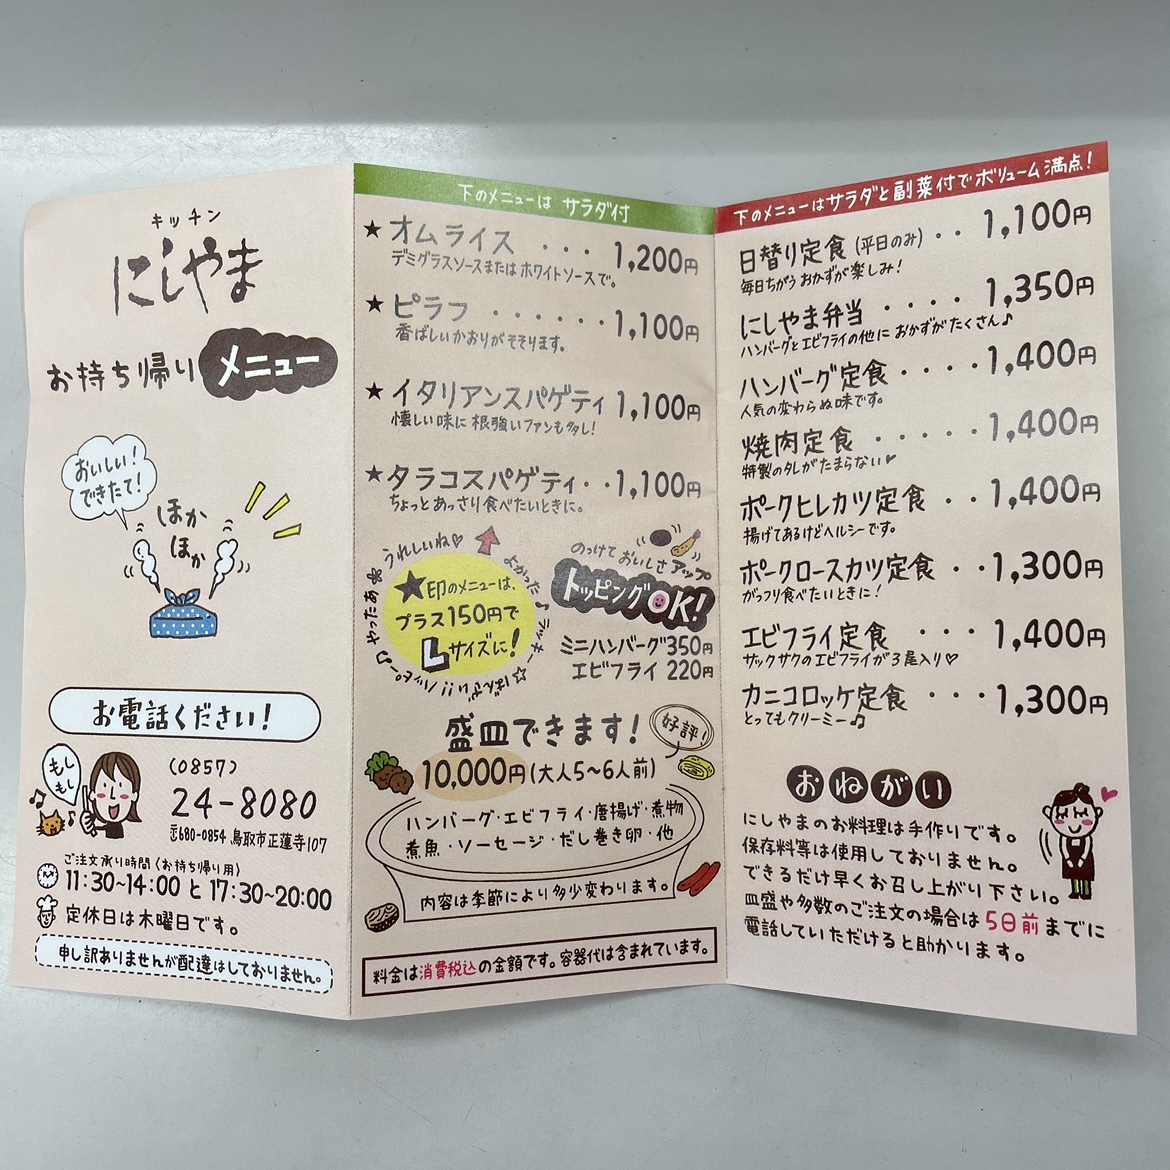 キッチン
にしやま
お持ち帰りメニュー
おいしい!
できたて!
ほか
ほか
お電話ください!
もし
もし
(0857)
24-8080
〒680-0854 鳥取市正蓮寺107
ご注文承り時間〈お持ち帰り用〉
11:30~14:00 と 17:30~20:00
定休日は木曜日です。
申し訳ありませんが配達はしておりません。
下のメニューは サラダ付
★オムライス ・・・ 1,200円
デミグラスソースまたは ホワイトソースで。
★ピラフ ・・・・・・ 1,100円
香ばしいかおりがそそります。
★イタリアンスパゲティ 1,100円
懐しい味に 根強いファンも多し!
★タラコスパゲティ・・1,100円
ちょっとあっさり食べたいときに。
うれしいね♡
よかった♪
ラッキー☆
ばんざい!!
ハッピー♫
やったあ
★印のメニューは、
プラス150円で
Lサイズに!
のっけて おいしさ アップ
トッピングOK!
ミニハンバーグ350円
エビフライ 220円
盛皿できます!
好評!
10,000円(大人5~6人前)
ハンバーグ・エビフライ・唐揚げ・煮物
煮魚・ソーセージ・だし巻き卵・他
内容は季節により多少変わります。
料金は消費税込の金額です。容器代は含まれています。
下のメニューはサラダと副菜付でボリューム満点!
日替り定食(平日のみ)・・ 1,100円
毎日ちがう おかずが楽しみ!
にしやま弁当 ・・・・ 1,350円
ハンバーグとエビフライの他に おかずがたくさん♪
ハンバーグ定食・・・・1,400円
人気の変わらぬ味です。
焼肉定食 ・・・・・1,400円
特製のタレがたまらない♥
ポークヒレカツ定食・・1,400円
揚げてあるけどヘルシーです。
ポークロースカツ定食 ・・1,300円
がっつり食べたいときに!
エビフライ定食 ・・・ 1,400円
サックサクのエビフライが3尾入り♡
カニコロッケ定食 ・・・1,300円
とってもクリーミー♫
おねがい
にしやまのお料理は手作りです。
保存料等は使用しておりません。
できるだけ早くお召し上がり下さい。
皿盛や多数のご注文の場合は5日前までに
電話していただけると助かります。